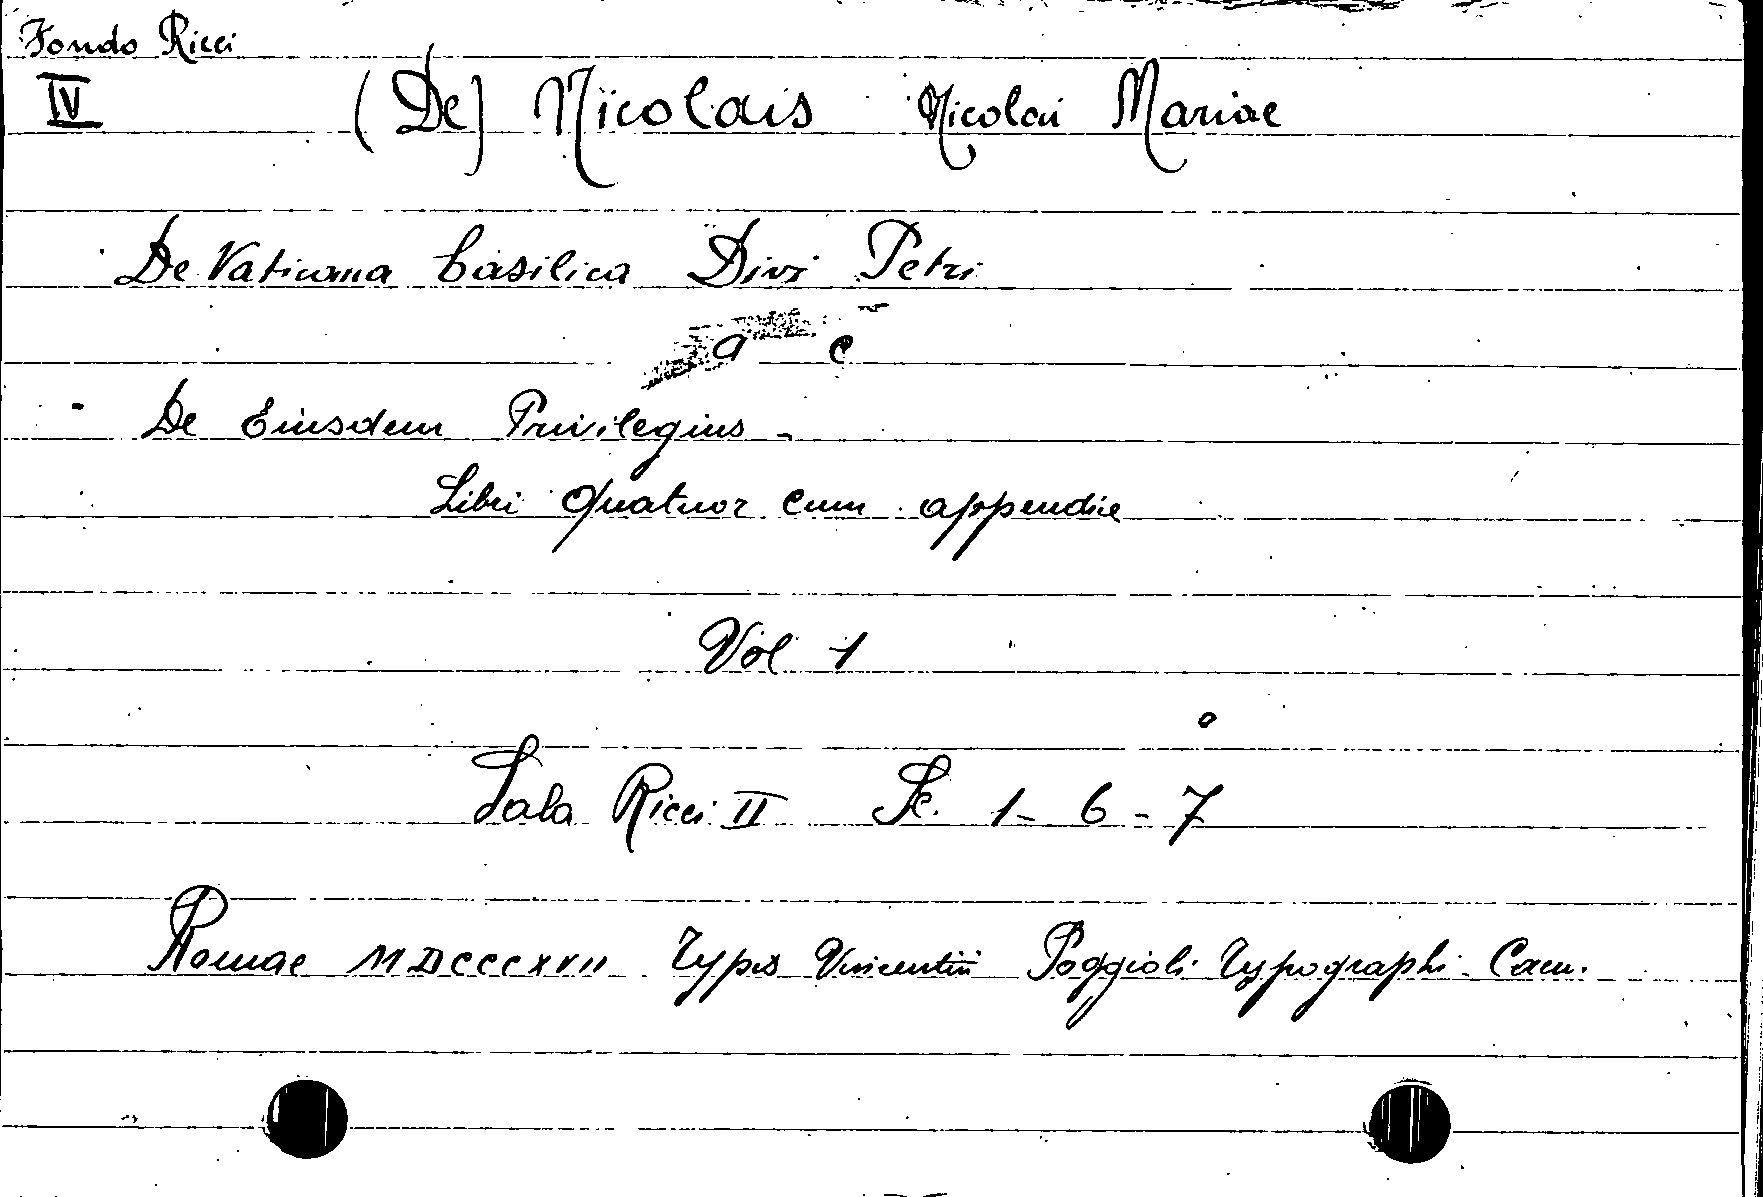 Fondo Ricci
IV (De) Nicolais Nicolai Mariae
De Vaticana basilica Divi Petri
a c
- De Eiusdem Privilegius -
Libri quatuor cum appendice
Vol 1
Sala Ricci II Sc. 1 - 6 - 7
Romae MDCCCXVII Typis Vincentii Poggioli Typographi Cam.